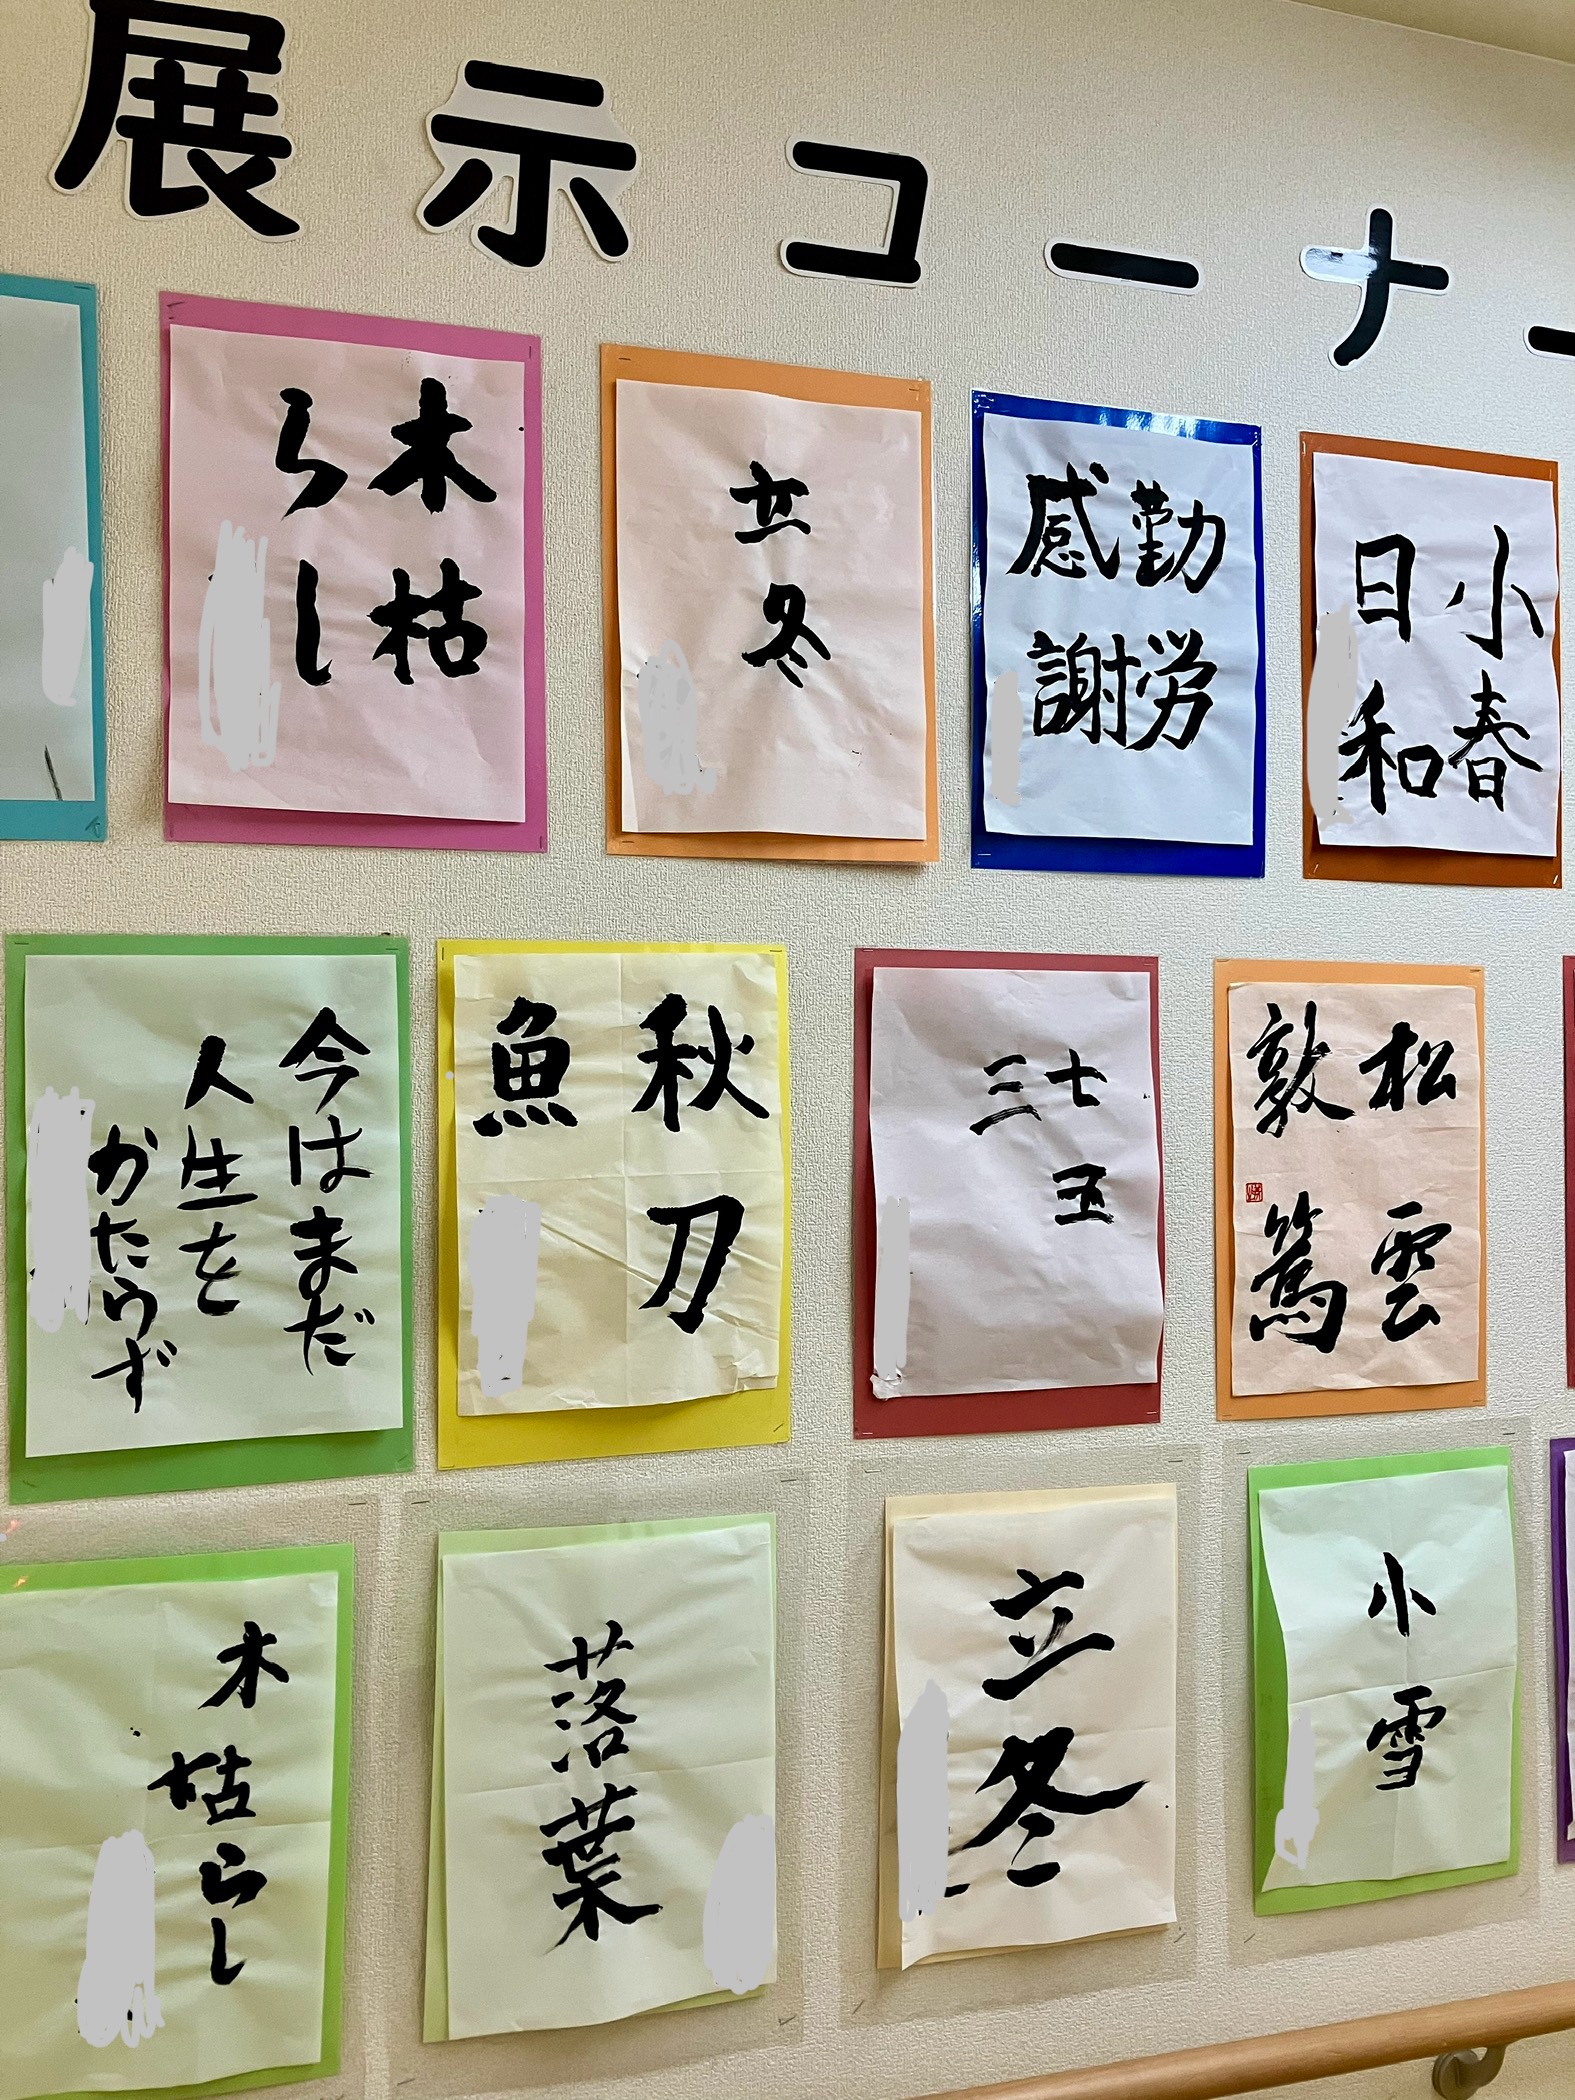 展示コーナー
木枯
らし
立冬
勤労
感謝
小春
日和
今はまだ
人生を
かたらず
秋刀
魚
七五
三
松雲
敦篤
木枯らし
落葉
立冬
小雪